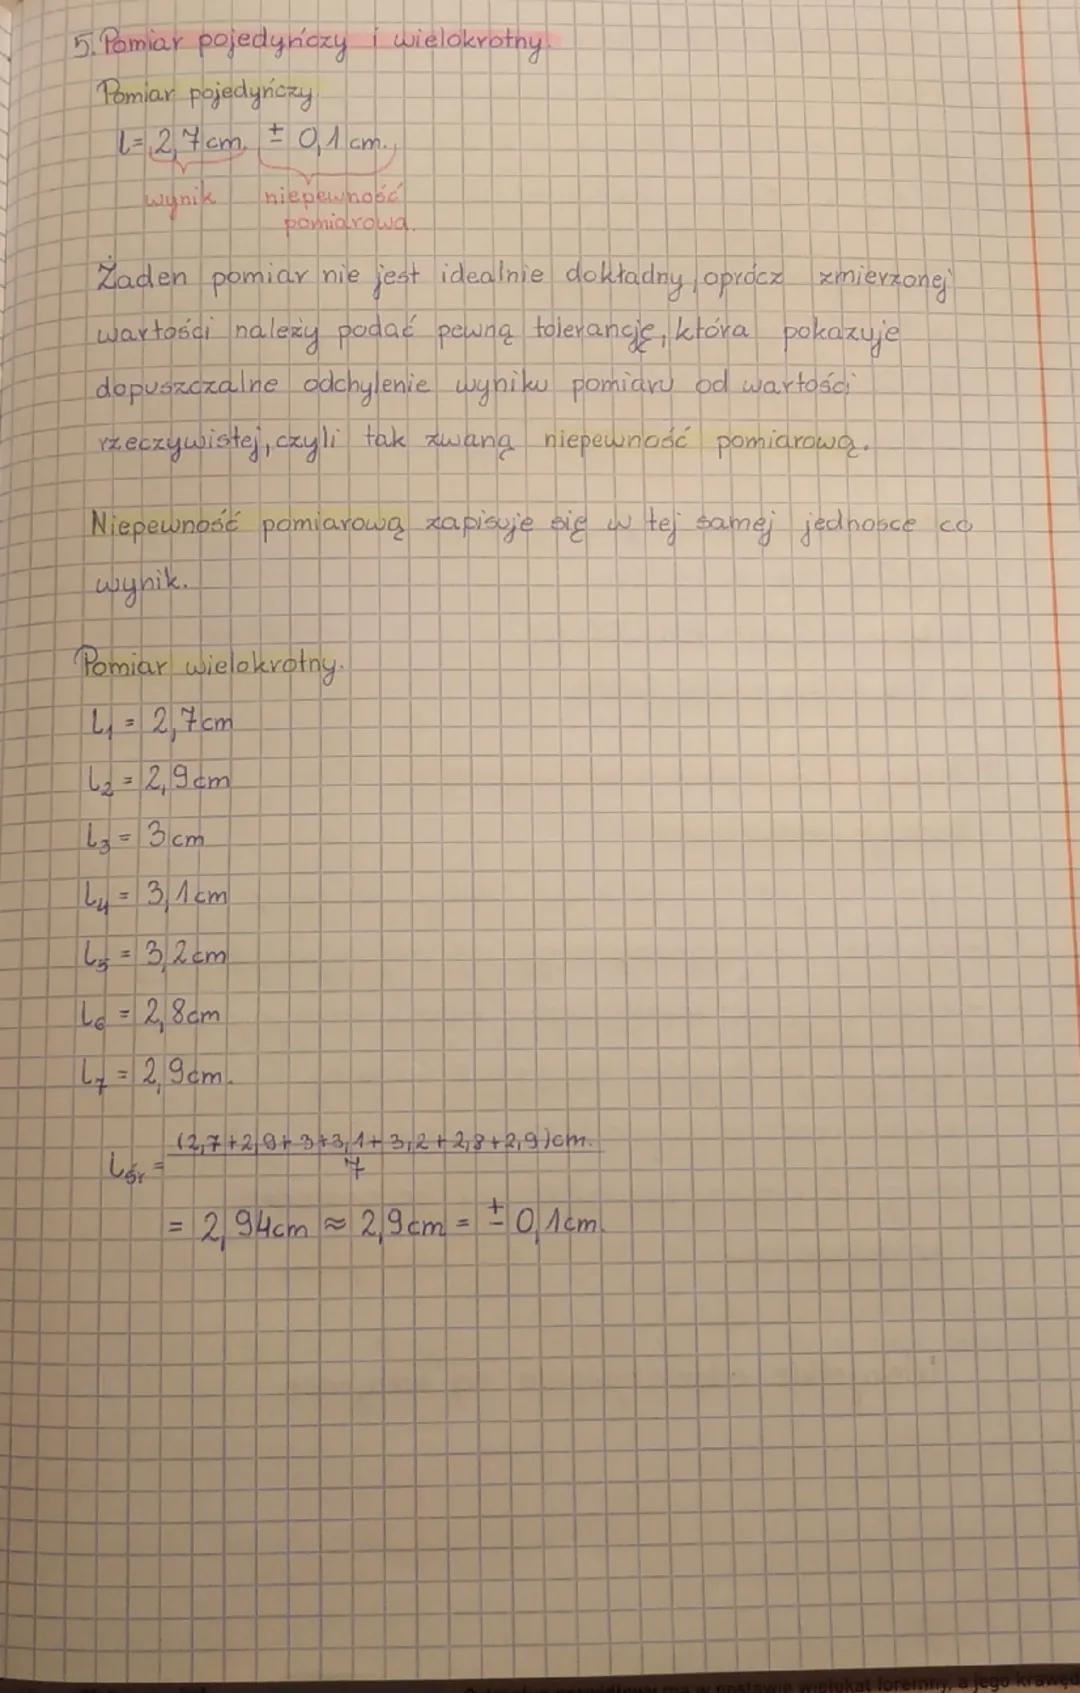 5. Pomiar pojedyńczy i wielokrotny.
Pomiar pojedyńczy.
l = 2,7 cm. ± 0,1 cm.
wynik niepewność
pomiarowa.
Żaden pomiar nie jest idealnie dokładny, oprócz zmierzonej
wartości należy podać pewną tolerancję, która pokazuje
dopuszczalne odchylenie wyniku pomiaru od wartości
rzeczywistej, czyli tak zwaną niepewność pomiarową.
Niepewność pomiarową zapisuje się w tej samej jednosce co
wynik.
Pomiar wielokrotny.
l₁ = 2,7 cm
l₂ = 2,9 cm
l₃ = 3 cm
l₄ = 3,1 cm
l₅ = 3,2 cm
l₆ = 2,8 cm
l₇ = 2,9 cm.
(2,7+2,9+3+3,1+3,2+2,8+2,9)cm.
lśr = 7
= 2,94cm ≈ 2,9cm = ± 0,1cm.
ma w podstawie wielokąt foremny, a jego krawęd